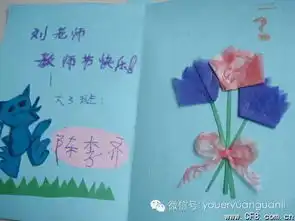 刘老师
教师节快乐!
大3班:
陈李齐
微信号: youeryuanguanli
www.CFB.com.cn